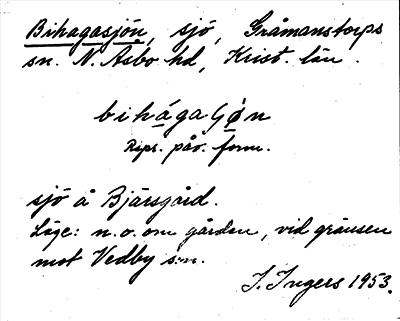 Bihagasjön, sjö, Gråmanstorps
sn. N. Åsbo hd, Krist. län.
bihágaʃøn
Ripr. påv. form.
sjö å Bjärsgård.
Läge: n.o. om gården, vid gränsen
mot Vedby s:n.
I. Ingers 1953.